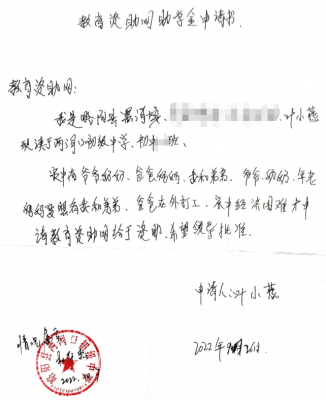 教育资助网助学金申请书
教育资助网:
我是略阳县黑河坝 叶小燕
就读于两河口初级中学、初 班、
家中有爷爷奶奶、爸爸妈妈、我和弟弟、爷爷奶奶、年老
妈妈 我和弟弟、爸爸在外打工、家中经济困难才申
请教育资助网给于资助、希望领导批准.
申请人:叶小燕
2022年 月26日
情况属实
略阳县两河口 中
2022.